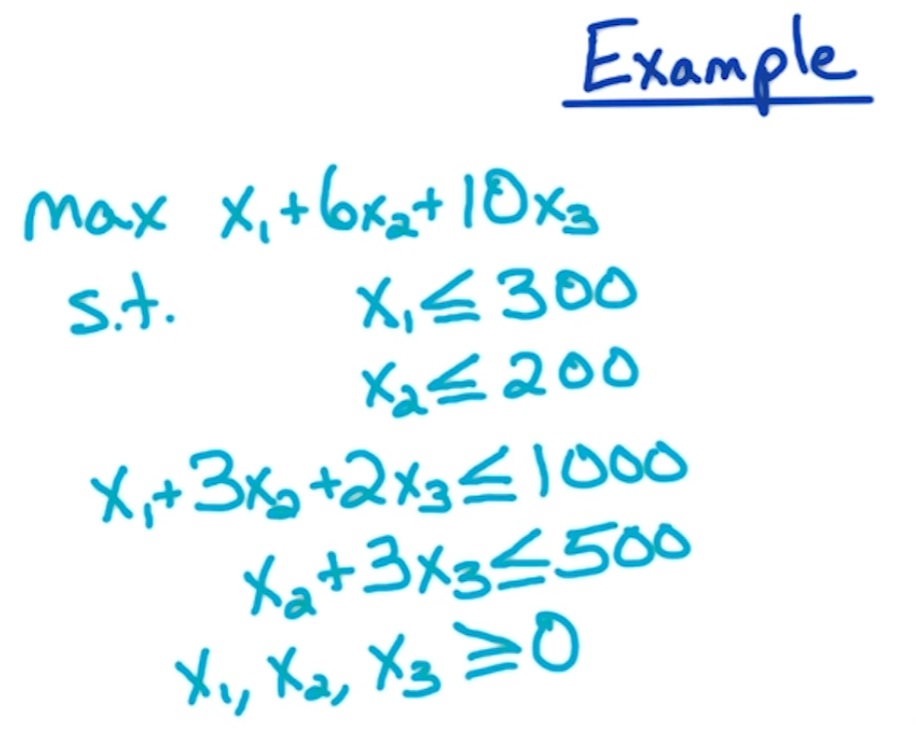 Example
max x₁+6x₂+10x₃
s.t. x₁≤300
x₂≤200
x₁+3x₂+2x₃≤1000
x₂+3x₃≤500
x₁, x₂, x₃ ≥0